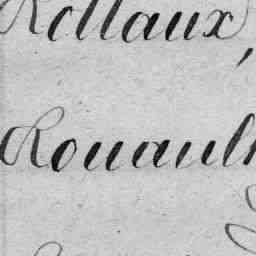 Rollaux,
Rouault